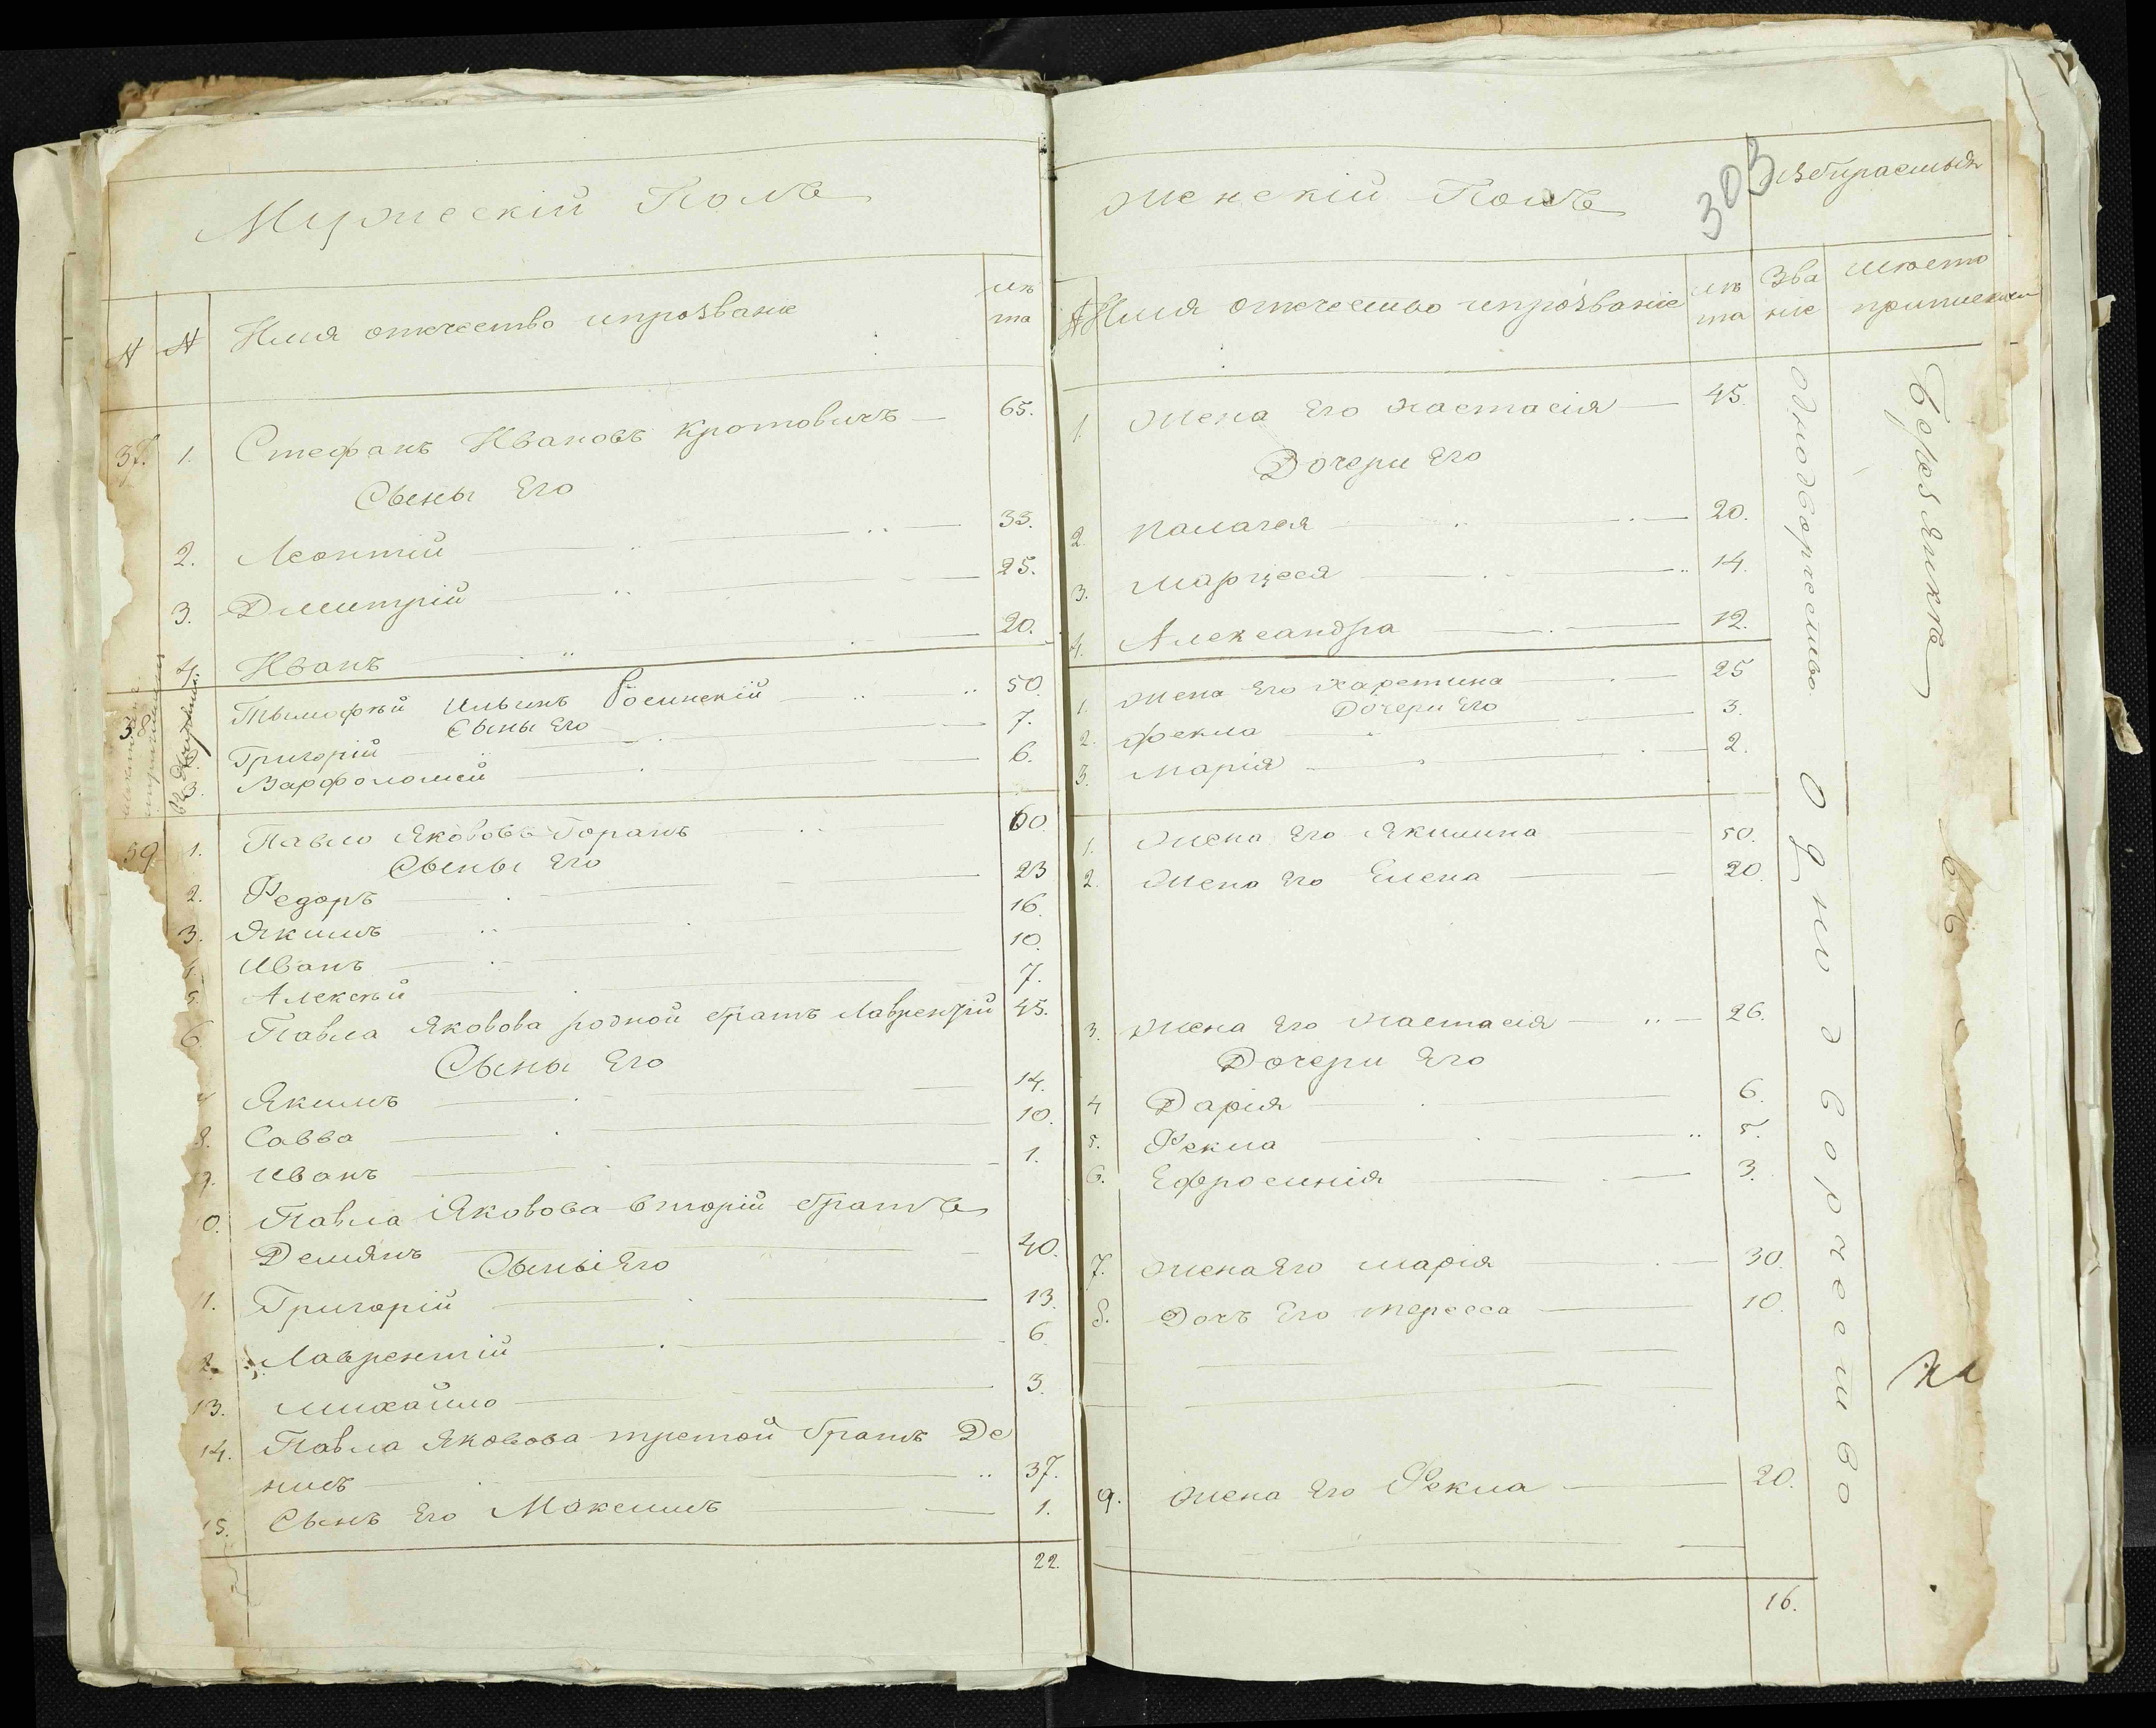 Мужескій Полъ
№ № Имя отечество ипрозваніе лѣ
та
37. 1. Стефанъ Ивановъ Кротовичъ 65.
Сыны Его
2. Леонтій 33.
3. Дмитрій 25.
4. Иванъ 20.
38 Тымофѣй Ильинъ Росинскій 50.
Сыны Его
Григорій 7.
3. Варфоломей 6.
39 1. Павло Якововъ Горанъ 60.
Сыны Его
2. Федоръ 23
3. Якимъ 16.
4. Иванъ 10.
5. Алексѣй 7.
6 Павла Яковова родной братъ Лаврентій 45.
Сыны Его
Якимъ 14.
8. Савва 10.
9. Иванъ 1.
0. Павла Яковова вторій братъ
Демянъ 40.
Сыны Его
11. Григорій 13.
2. Лаврентій 6
13. михайло 3.
14. Павла Яковова третой братъ Де
нисъ 37.
15. Сынъ Его Максимъ 1.
22.
Женскій Полъ
303
Избираемыя
№ Имя отечество ипрозваніе лѣ
та
Зва
ніе
мѣсто
приписки
1. Жена Его Настасія 45.
Дочери Его
2. Палагея 20.
3. Марцеся 14.
4. Александра 12.
1. Жена Его Харетина 25
Дочери Его
2. Фекла 3.
3. Марія 2.
1. Жена Его Якилина 50.
2. Жена Его Елена 20.
3. Жена Его Настасія 26.
Дочери Его
4 Дарія 6.
5. Фекла 5.
6. Ефросинія 3.
7. Жена Его марія 30.
8. Дочъ Его тересса 10.
9. Жена Его Фекла 20.
16.
однодворчество
Однодворчество